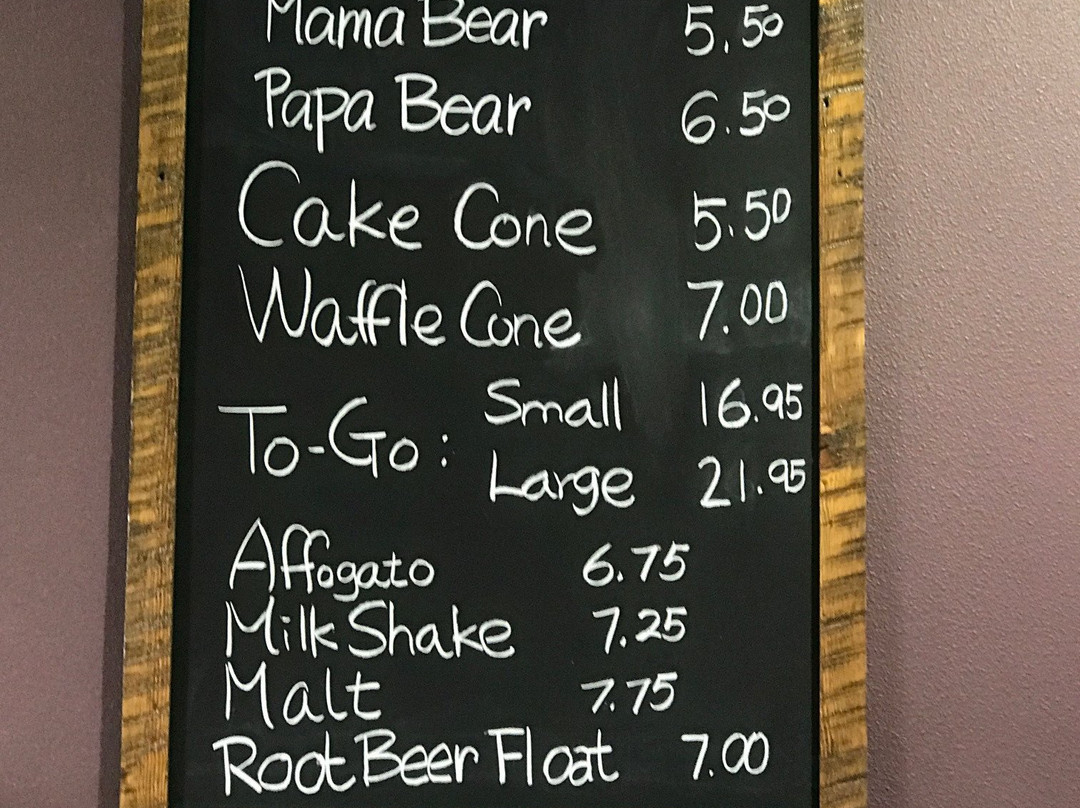 Mama Bear 5.50
Papa Bear 6.50
Cake Cone 5.50
Waffle Cone 7.00
To-Go: Small 16.95
Large 21.95
Affogato 6.75
Milk Shake 7.25
Malt 7.75
Root Beer Float 7.00